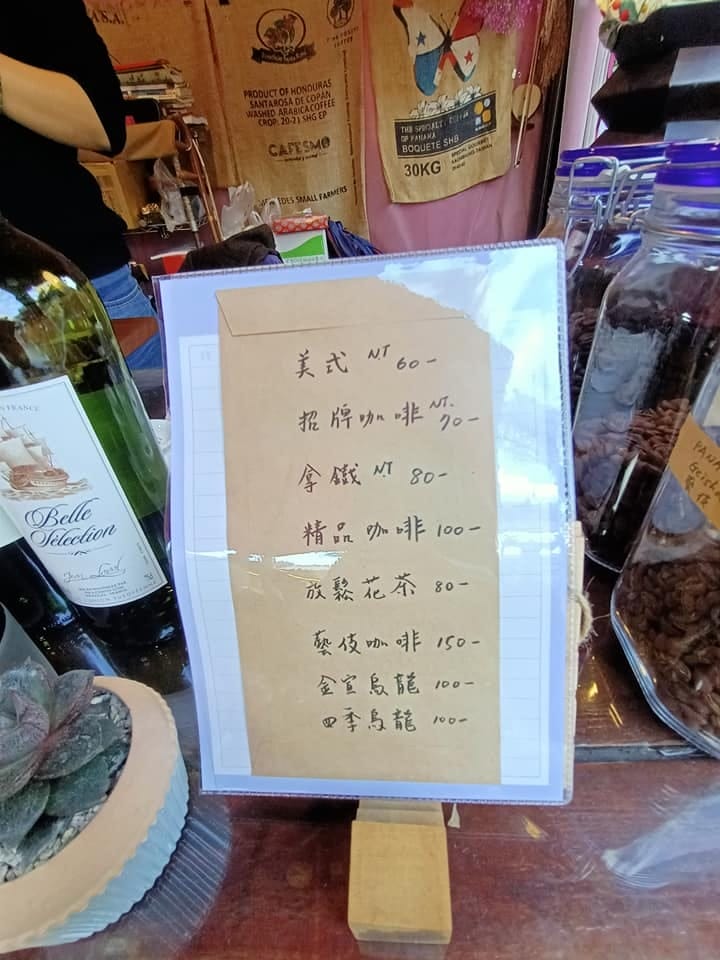 PRODUCT OF HONDURAS
SANTAROSA DE COPAN
WASHED ARABICA COFFEE
CROP: 20-21 SHG EP
CAFESMO
SMALL FARMERS
OF PANAMA
BOQUETE SHB
30KG
FRANCE
Belle
Sélection
美式 NT 60-
招牌咖啡 NT. 70-
拿鐵 NT 80-
精品咖啡 100-
放鬆花茶 80-
藝伎咖啡 150-
金宣烏龍 100-
四季烏龍 100-